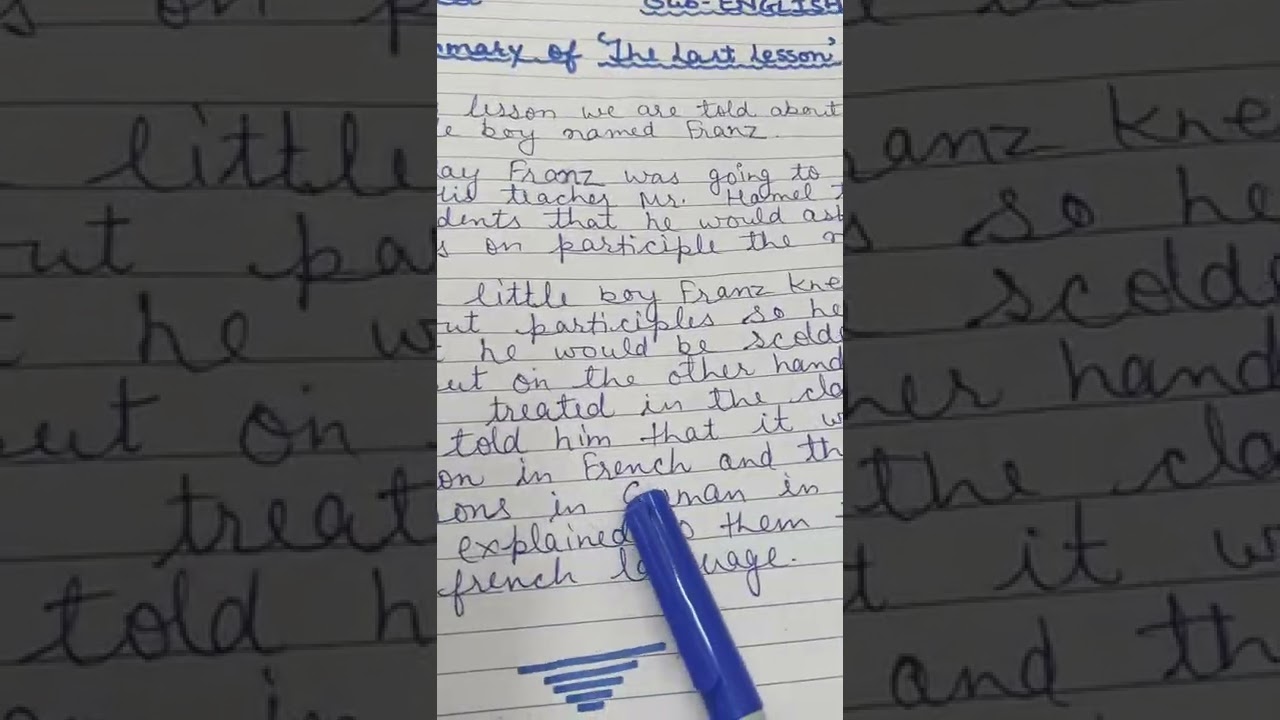 SUB-ENGLISH
mmary of 'The Last Lesson'
lesson we are told about
e boy named Franz.
ay Franz was going to
his teacher Mr. Hamel
dents that he would as
s on participle the
little boy Franz kne
ut participles so he
he would be scold
ut on the other hand
treated in the cla
told him that it w
on in French and th
ions in German in
explained to them
french language.